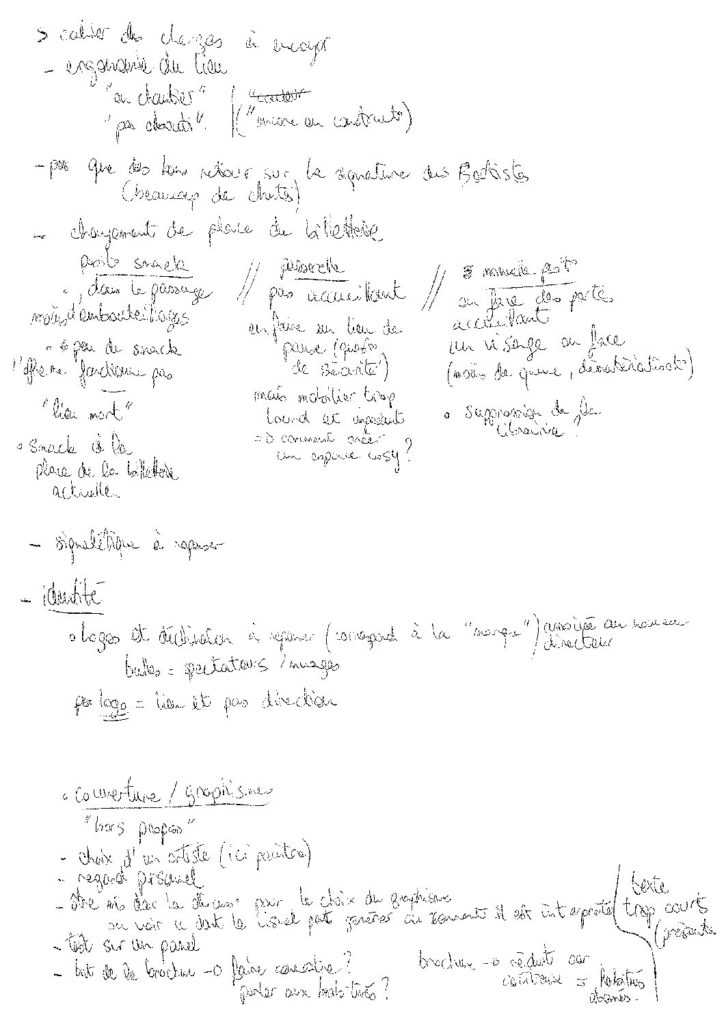 > cahier des charges à envoyer
- ergonomie du lieu
"en chantier"
"pas abouti"
("encore en construct°")
- pas que des bons retour sur la signature des Baptistes
(beaucoup de chutes)
- changement de place du billetterie
posit° snack
dans le passage
moins d'embouteillages
peu de snack
l'offre ne fonctionne pas
"lieu mort"
• snack à la
place de la billetterie
actuelle
// passerelle
pas accueillant
en faire un lieu de
pause (quest°
de sécurité)
mais mobilier trop
lourd et imposant
=> comment créer
un espace cosy ?
// nouvelle posit°
en face des portes
accueillant
un visage en face
(moins de queue, dématérialisat°)
• suppression de la
librairie
- signalétique à repenser
- identité
• Logos et déclinaison à repenser (correspond à la "marque") associée au nouveau
directeur
bulles = spectateurs / nuages
logo = lieu et pas direction
• couverture / graphisme
"hors propos"
- choix d'un artiste (ici peintre)
- regard personnel
- être mis dans la pour le choix du graphisme
ou voir ce dont le visuel peut générer comment il est interprété
- test sur un panel
- but de la brochure -> faire connaître ?
parler aux habitués ?
brochure -> réduit car
coûteuse = habitués
abonnés.
texte
trop courts
(présenta